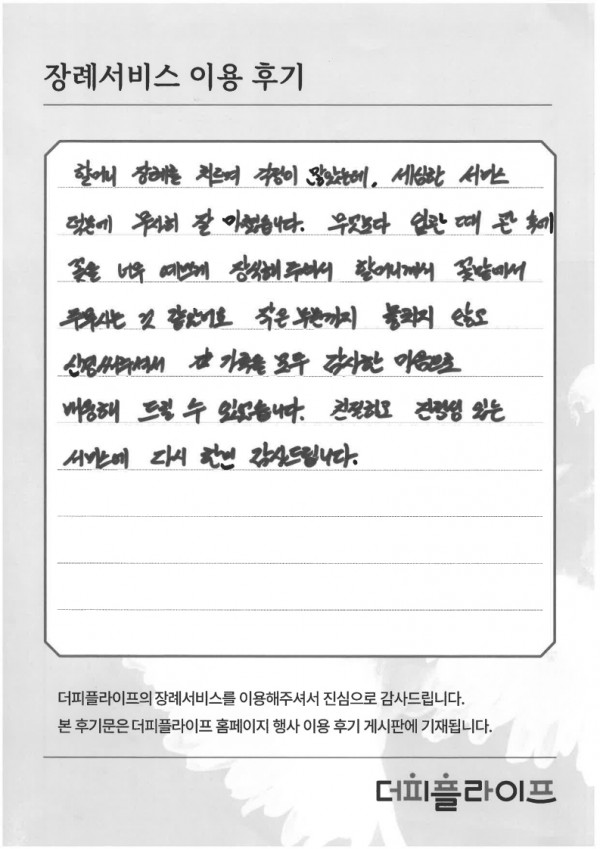 장례서비스 이용 후기
할머니 장례를 치르며 걱정이 많았는데, 세심한 서비스
덕분에 무사히 잘 마쳤습니다. 무엇보다 입관 때 관 위에
꽃을 너무 예쁘게 장식해주셔서 할머니께서 꽃밭에서
주무시는 것 같았어요 작은 부분까지 놓치지 않고
신경써주셔서 가족들 모두 감사한 마음으로
배웅해 드릴 수 있었습니다. 친절하고 전문성 있는
서비스에 다시 한번 감사드립니다.
더피플라이프의 장례서비스를 이용해주셔서 진심으로 감사드립니다.
본 후기문은 더피플라이프 홈페이지 행사 이용 후기 게시판에 기재됩니다.
더피플라이프